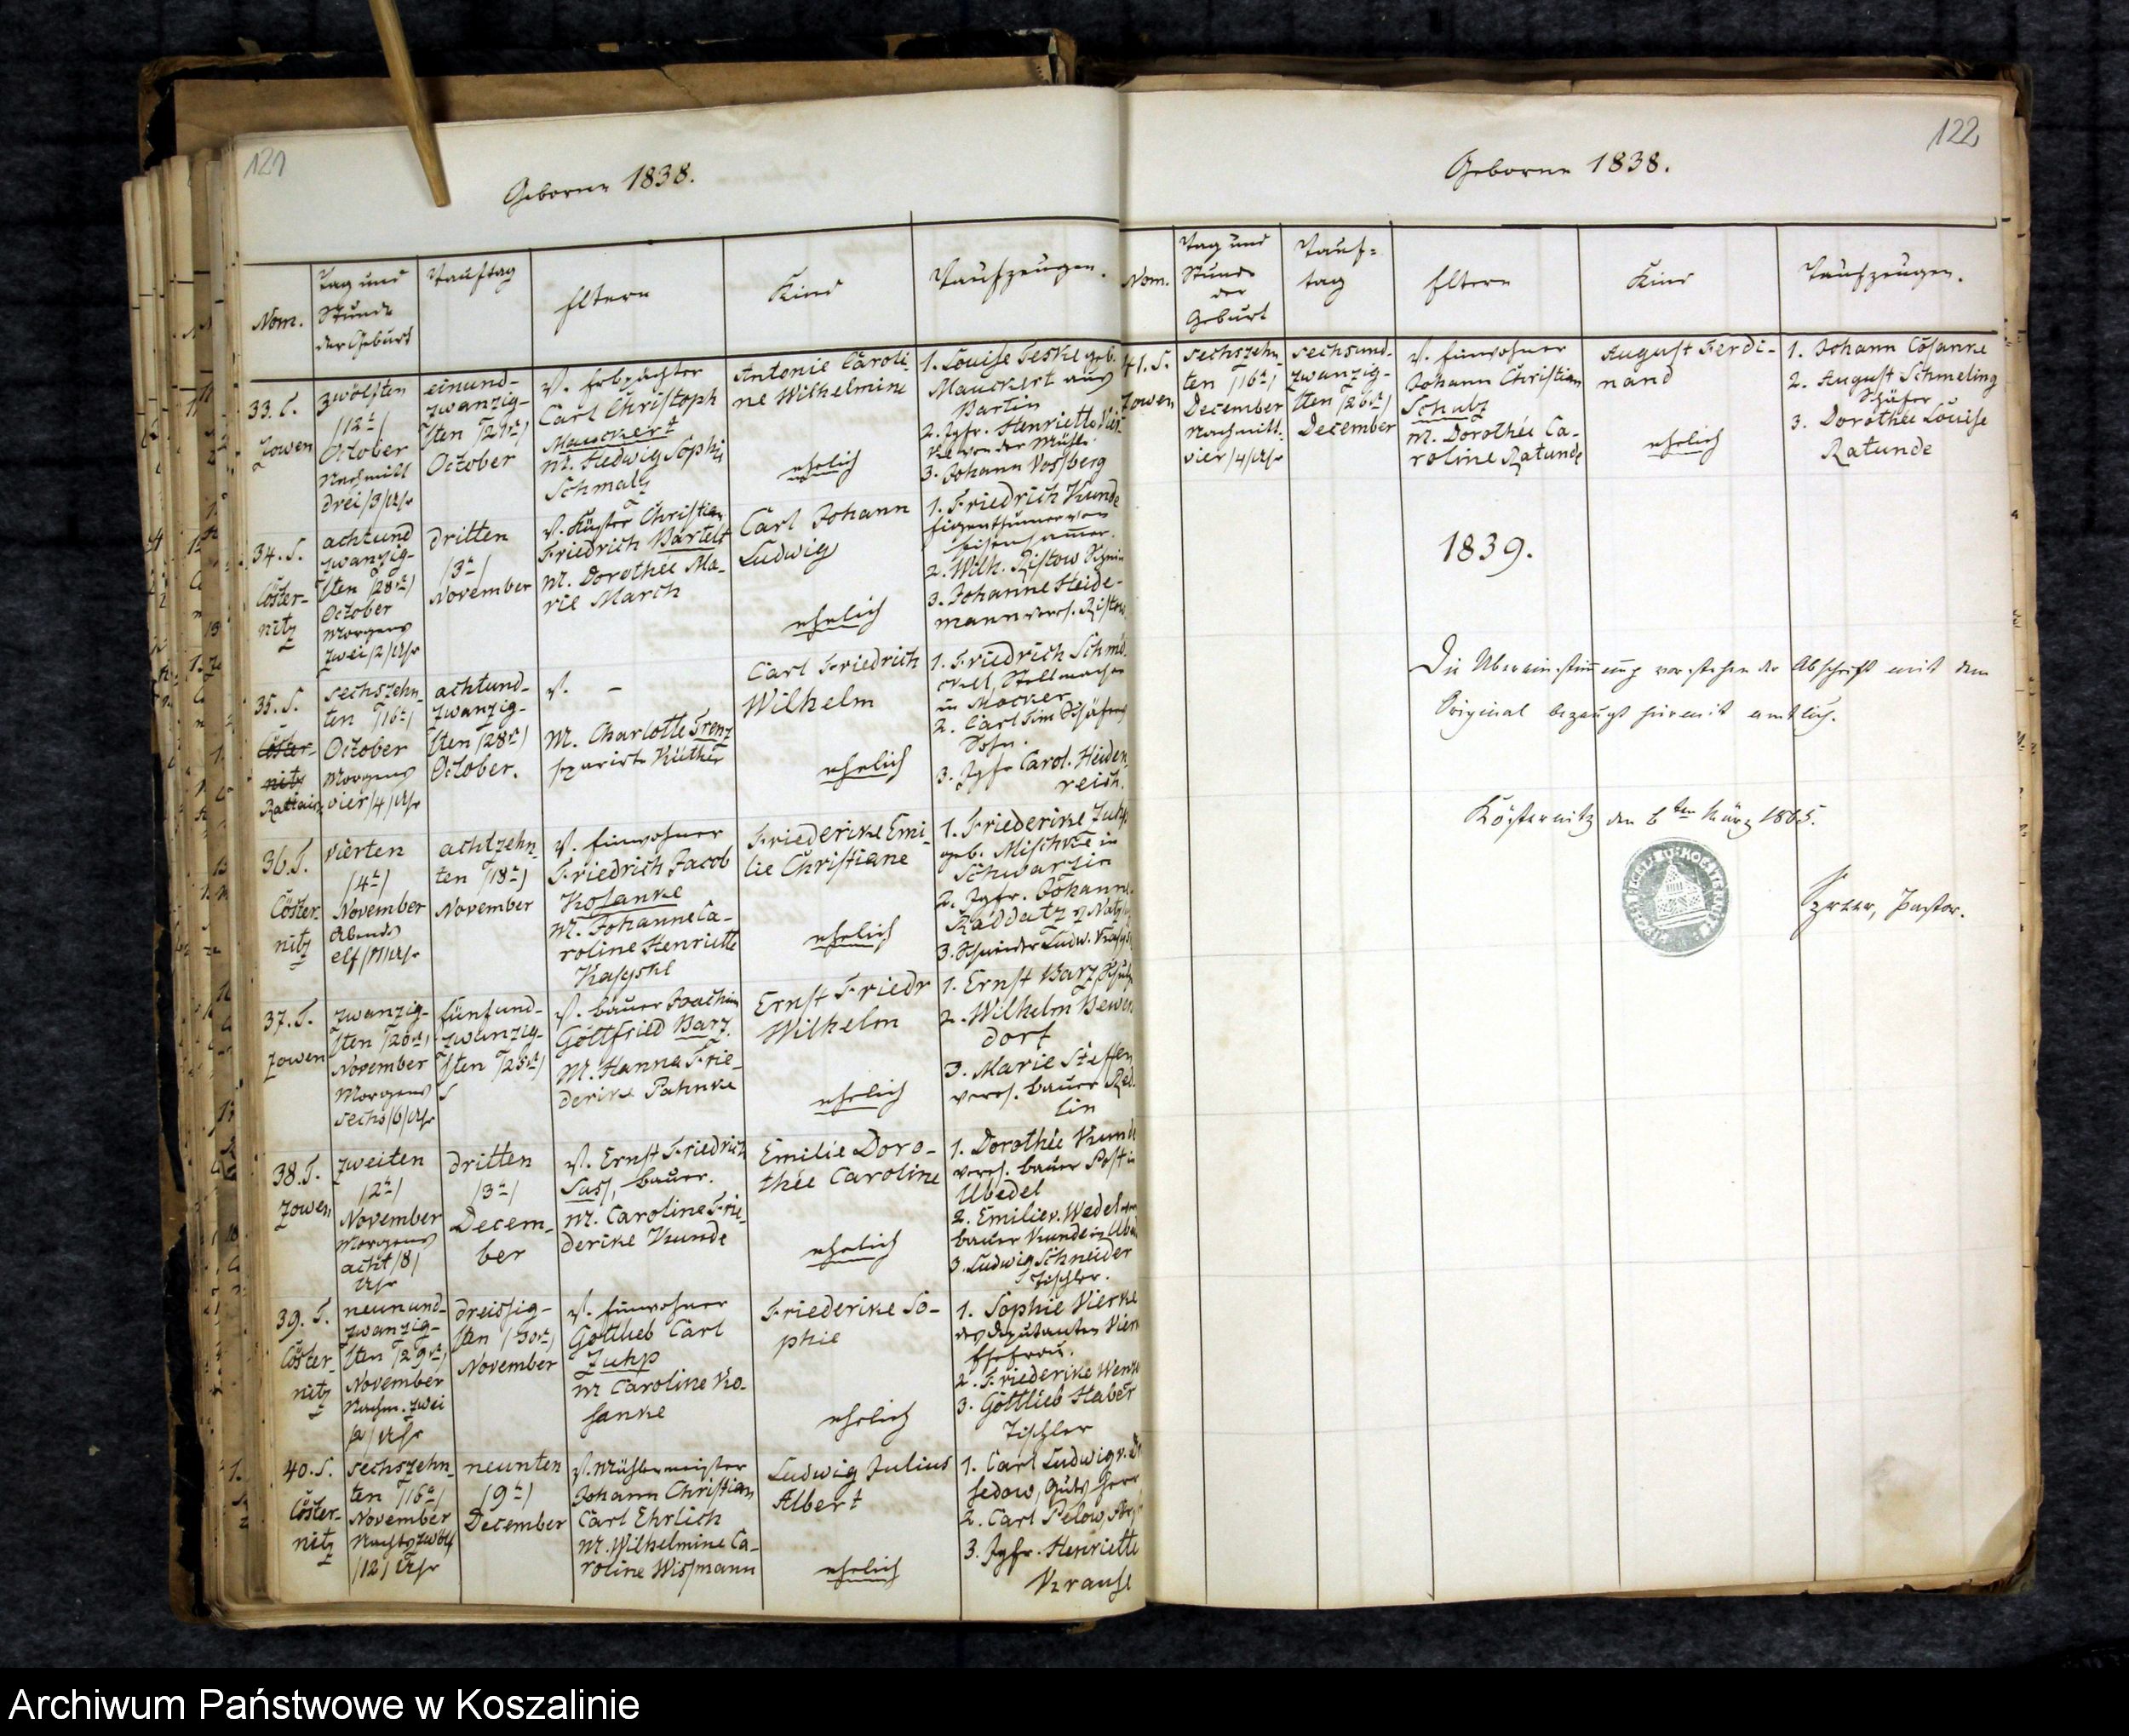 121
Geborne 1838.
Nom.
Tag und
Stunde
der Geburt
Tauftag
Eltern
Kind
Taufzeugen.
33. T.
Zowen
zwölften
/12t/
October
Nachmitt
drei /3/ Uhr
einund-
zwanzig-
sten /21st/
October
V. Erbpächter
Carl Christoph
Mauckert
M. Hedwig Sophie
Schmalz
Antonie Caroli-
ne Wilhelmine
ehelich
1. Louise Teske geb.
Mauckert aus
Bartin
2. Jgfr. Henriette
von der Mühle.
3. Johann Vossberg
34. S.
Cöster-
nitz
achtund
zwanzig-
sten /28st/
October
Morgens
zwei /2/ Uhr
dritten
/3t/
November
V. Küster Christian
Friedrich Bartelt
M. Dorothée Ma-
rie March
Carl Johann
Ludwig
ehelich
1. Friedrich Kunde
Eigenthümer von
2. Wilh. Ristow
3. Johanne Heide-
mann vereh. Ristow
35. S.
Cöster-
nitz
sechszehn-
ten /16t/
October
Morgens
vier /4/ Uhr
achtund-
zwanzig-
sten /28st/
October.
V. –
M. Charlotte Trenz
separirte Küther
Carl Friedrich
Wilhelm
ehelich
1. Friedrich Schmö-
ckell, Stellmacher
in Mocker
2. Carl Tim Schäfers
Sohn.
3. Jgfr. Carol. Heiden-
reich.
36. T.
Cöster-
nitz
vierten
/4t/
November
Abends
elf /11/ Uhr
achtzehn-
ten /18t/
November
V. Einwohner
Friedrich Jacob
Kosanke
M. Johanne Ca-
roline Henriette
Kasyske
Friederike Emi-
lie Christiane
ehelich
1. Friederike Zuhp
geb. Mischke in
Schwarzin
2. Jgfr. Johanne
Raddatz
3. Schneider Ludw. Kasyske
37. S.
Zowen
zwanzig-
sten /20st/
November
Morgens
sechs /6/ Uhr
fünfund-
zwanzig-
sten /25st/
V. Bauer Joachim
Gottfried Barz.
M. Hanna Frie-
derike Pahnke
Ernst Friedr
Wilhelm
ehelich
1. Ernst Barz, Schulz
2. Wilhelm Bewers
dorf
3. Marie Steffen
vereh. Bauer Red-
lin
38. T.
Zowen
zweiten
/2t/
November
Morgens
acht /8/
Uhr
dritten
/3t/
Decem-
ber
V. Ernst Friedrich
Sass, Bauer.
M. Caroline Frie-
derike Kunde
Emilie Doro-
thée Caroline
ehelich
1. Dorothée Kunde
vereh. Bauer Post in
Ubedel
2. Emilie v. Wedel
Bauer Kunde in Ubed
3. Ludwig Schneider
Tischler.
39. T.
Cöster-
nitz
neunund-
zwanzig-
sten /29st/
November
Nachm. zwei
/2/ Uhr
dreissig-
sten /30st/
November
V. Einwohner
Gottlieb Carl
Zuhp
M Caroline Ko-
sanke
Friederike So-
phie
ehelich
1. Sophie Vierke
des Deputanten Vierk
Ehefrau.
2. Friederike
3. Gottlieb Haber
Tischler
40. S.
Cöster-
nitz
sechszehn-
ten /16t/
November
Nachts zwölf
/12/ Uhr
neunten
/9t/
December
V. Mühlenmeister
Johann Christian
Carl Ehrlich
M. Wilhelmine Ca-
roline Wissmann
Ludwig Julius
Albert
ehelich
1. Carl Ludwig v.
sedow, Guts Herr
2. Carl Pelow,
3. Jgfr. Henriette
Krause
122
Geborne 1838.
Nom.
Tag und
Stunde
der
Geburt
Tauf-
tag
Eltern
Kind
Taufzeugen.
41. S.
Zowen
sechszehn-
ten /16t/
December
Nachmitt.
vier /4/ Uhr
sechsund-
zwanzig-
sten /26st/
December
V. Einwohner
Johann Christian
Schulz
M. Dorothée Ca-
roline Ratunde
August Ferdi-
nand
ehelich
1. Johann Cosanke
2. August Schmeling
Schäfer
3. Dorothée Louise
Ratunde
1839.
Die Übereinstimmung vorstehender Abschrift mit dem
Original bezeugt hiermit amtlich.
Kösternitz den 6ten März 1865.
Pastor.
Archiwum Państwowe w Koszalinie